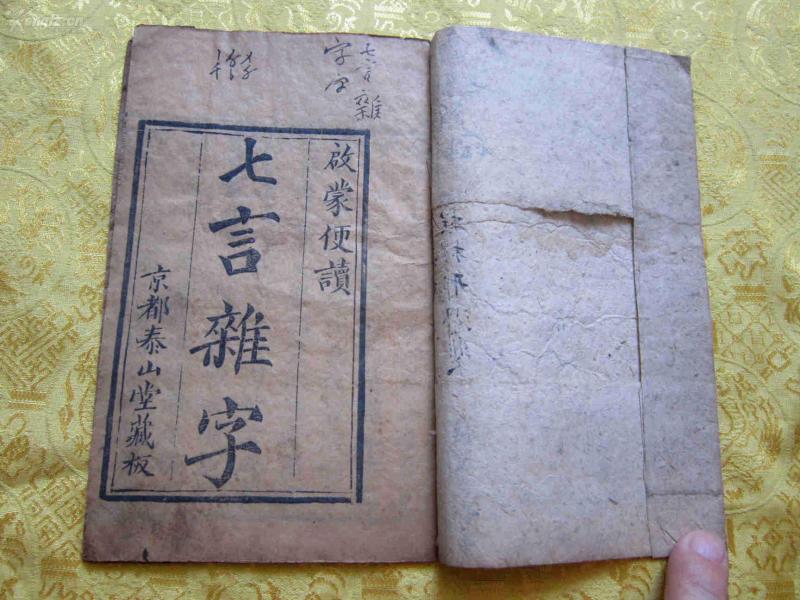 七言雜
字字
啟蒙便讀
七言雜字
京都泰山堂藏板